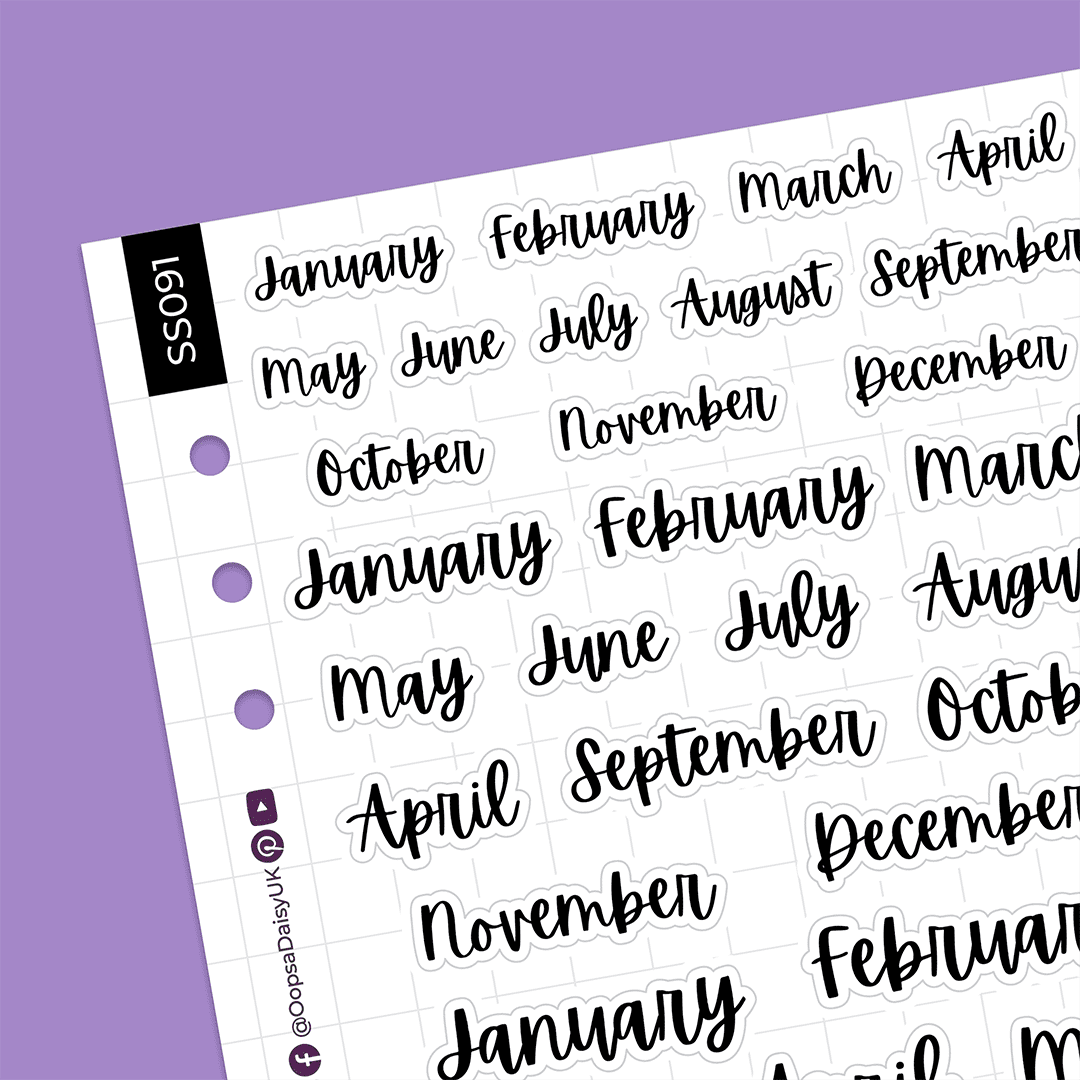 SS091
January February March April
May June July August September
October November December
January February March
May June July Augu
April September Octob
November December
January Februar
April M
@OopsaDaisyUK